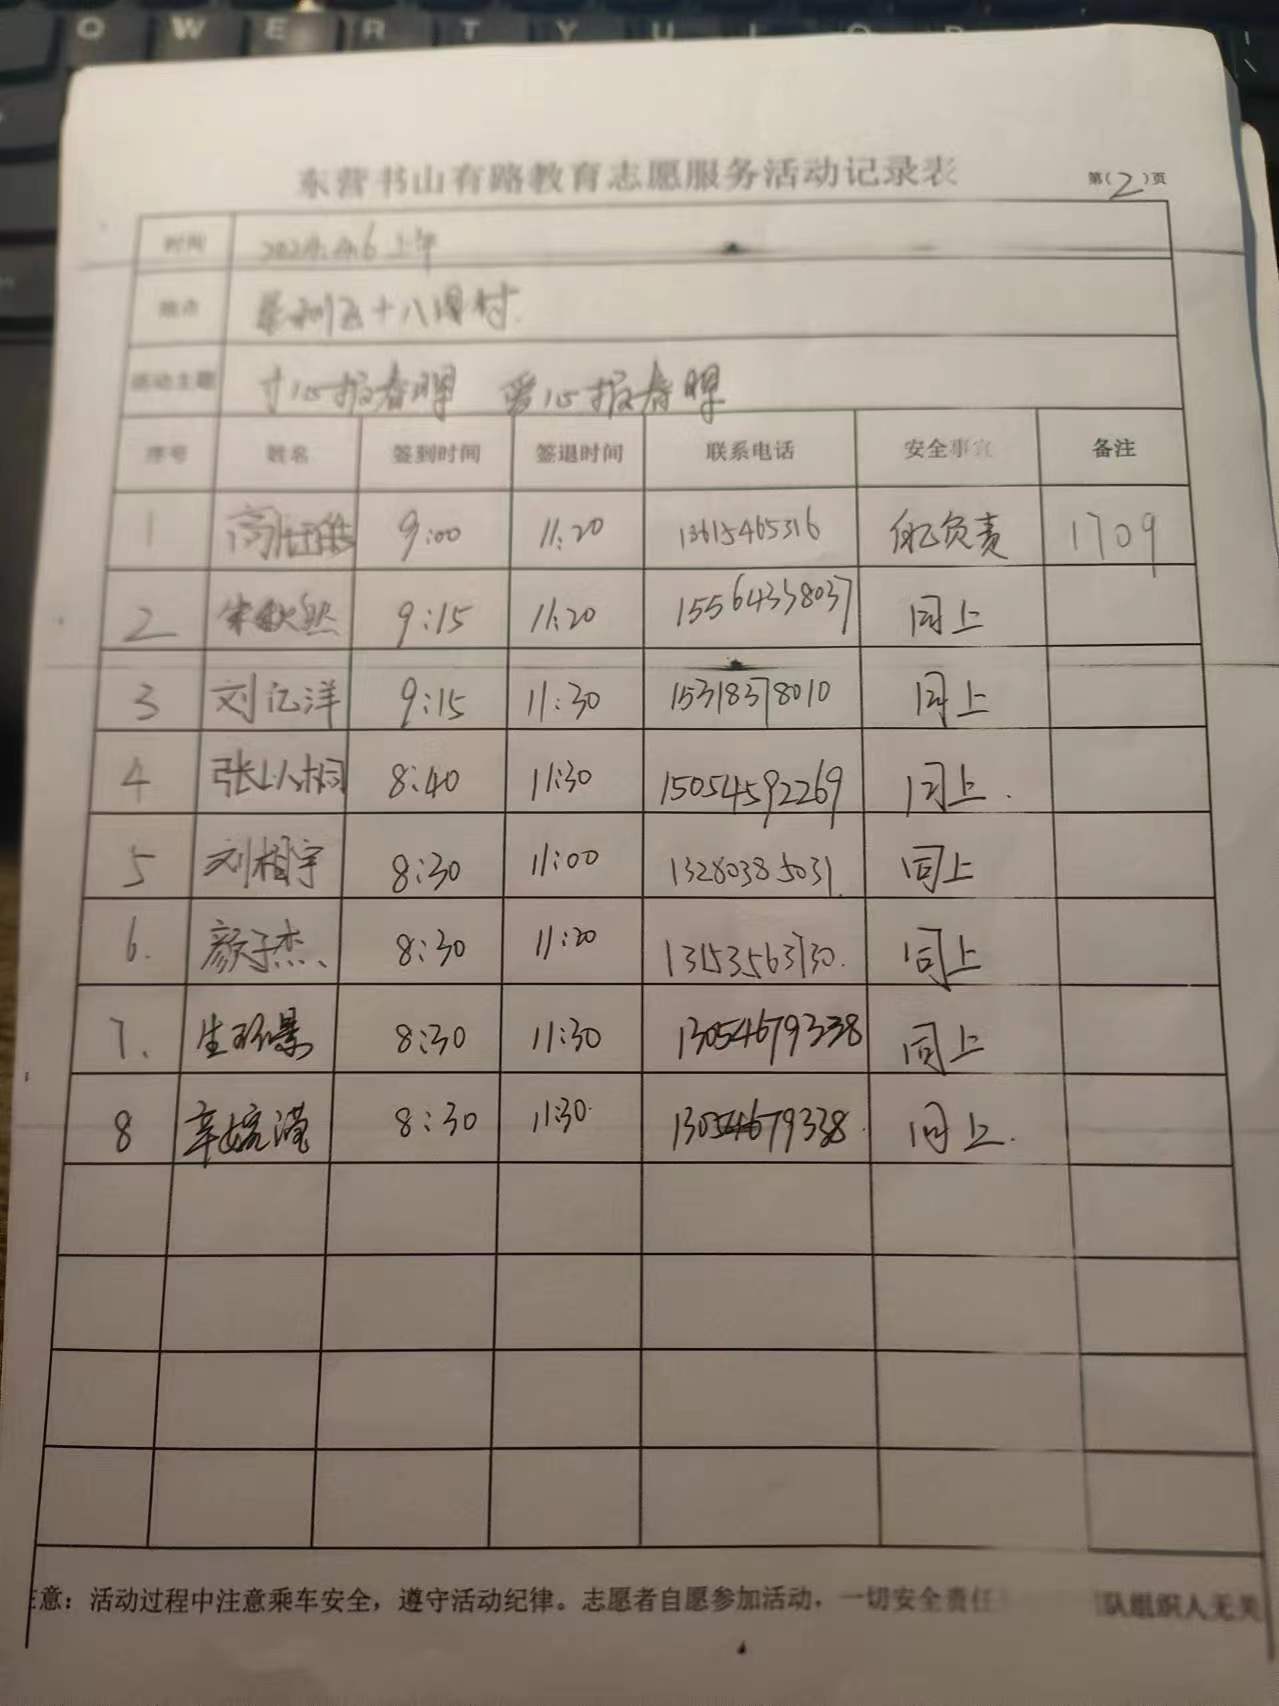 东营书山有路教育志愿服务活动记录表 第(2)页
时间 2024.4.6 上午
地点 十八图村
活动主题 寸心报春晖 爱心报春晖
序号 姓名 签到时间 签退时间 联系电话 安全事宜 备注
1 高 9:00 11:20 13615465316 自己负责 1709
2 宋秋然 9:15 11:20 15564338037 同上
3 刘亿洋 9:15 11:30 15318378010 同上
4 张以桐 8:40 11:30 15054592269 同上.
5 刘相宇 8:30 11:00 13280385031. 同上
6. 颜子杰、 8:30 11:20 13153563730. 同上
7. 生 8:30 11:30 13054679338 同上
8 辛 8:30 11:30. 13054679338. 同上.
意：活动过程中注意乘车安全，遵守活动纪律。志愿者自愿参加活动，一切安全责任 队组织人无关